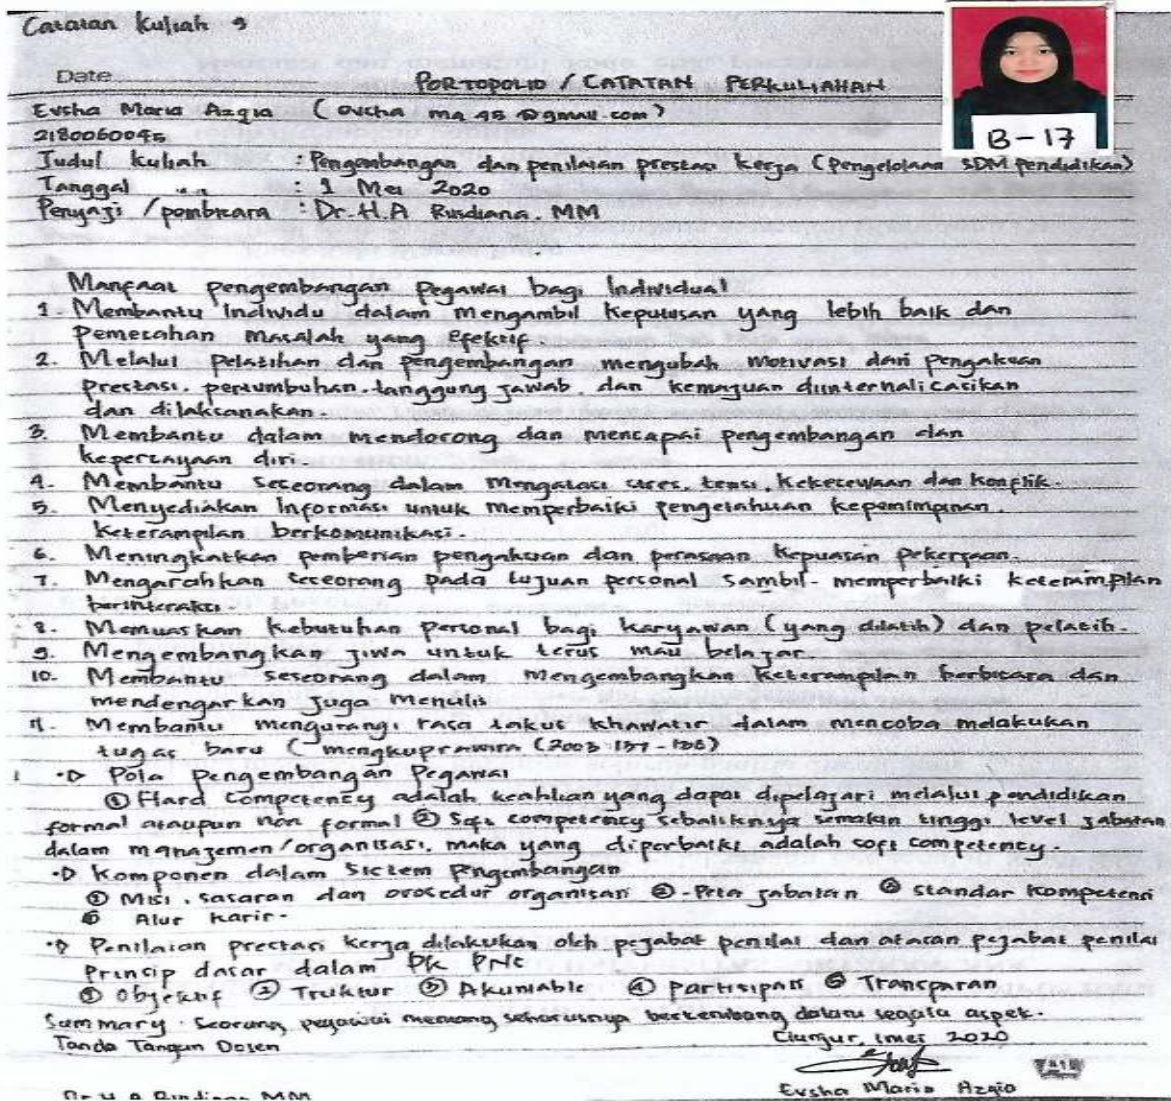 Catatan Kuliah 9
Date
PORTOPOLIO / CATATAN PERKULIAHAN
Evsha Maria Azqia (ovsha ma 95 @gmail.com)
2180060095
B-17
Judul kuliah : Pengembangan dan penilaian prestasi kerja (pengelolaan SDM pendidikan)
Tanggal : 1 Mei 2020
Penyaji / pembicara : Dr. H.A Rusdiana. MM
Manfaat pengembangan Pegawai bagi Individual
1. Membantu individu dalam mengambil keputusan yang lebih baik dan
pemecahan masalah yang efektif.
2. Melalui pelatihan dan pengembangan mengubah motivasi dari pengakuan
prestasi, pertumbuhan, tanggung jawab, dan kemajuan diinternalisasikan
dan dilaksanakan.
3. Membantu dalam mendorong dan mencapai pengembangan dan
kepercayaan diri.
4. Membantu seseorang dalam mengatasi stres, tensi, kekecewaan dan konflik.
5. Menyediakan informasi untuk memperbaiki pengetahuan kepemimpinan.
keterampilan berkomunikasi.
6. Meningkatkan pemberian pengakuan dan perasaan kepuasan pekerjaan.
7. Mengarahkan seseorang pada tujuan personal sambil memperbaiki keterampilan
berinteraksi.
8. Memuaskan kebutuhan personal bagi karyawan (yang dilatih) dan pelatih.
9. Mengembangkan jiwa untuk terus mau belajar.
10. Membantu seseorang dalam mengembangkan keterampilan berbicara dan
mendengarkan juga menulis
11. Membantu mengurangi rasa takut khawatir dalam mencoba melakukan
tugas baru (mengkuprawira (2003
Pola Pengembangan Pegawai
① Hard Competency adalah keahlian yang dapat dipelajari melalui pendidikan
formal ataupun non formal ② Soft competency sebaliknya semakin tinggi level jabatan
dalam manajemen/organisasi, maka yang diperbaiki adalah soft competency.
Komponen dalam Sistem Pngembangan
① Misi, sasaran dan prosedur organisasi ② Peta jabatan standar kompetensi
Alur karir.
Penilaian prestasi kerja dilakukan oleh pejabat penilai dan atasan pejabat penilai
Prinsip dasar dalam PK PNS
① Objektif ② Truktur ③ Akuntable ④ partisipasi ⑤ Transparan
Summary: Seorang pegawai memang seharusnya berkembang dalam segala aspek.
Tanda Tangan Dosen
Cianjur, 1 mei 2020
Evsha Maria Azqia
Dr. H A Rusdiana MM